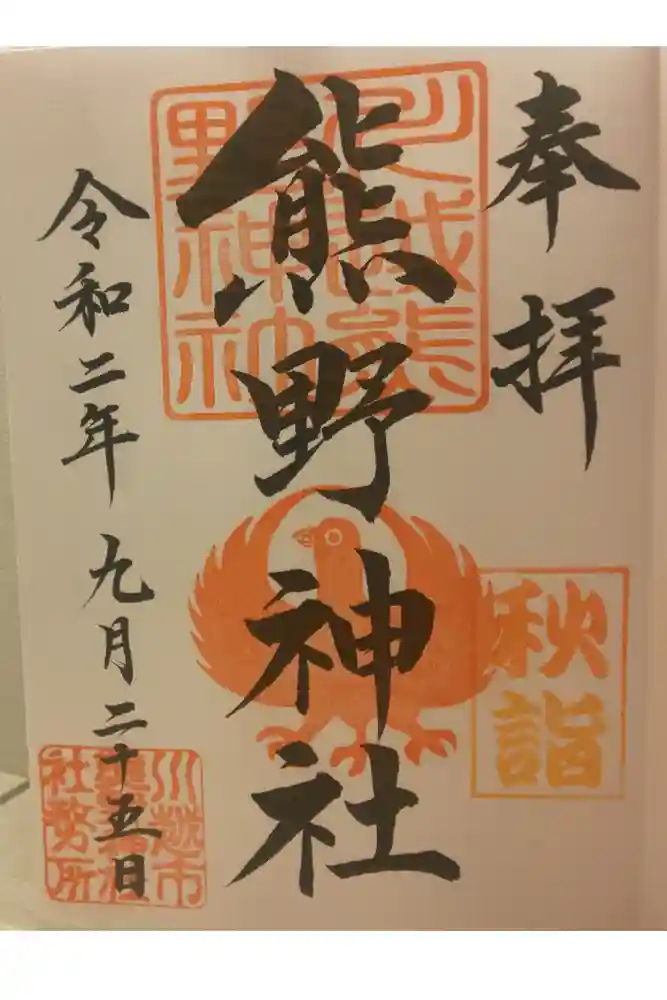 奉拝
秋詣
熊野神社
川越熊野神社
令和二年九月二十五日
川越市
社務所